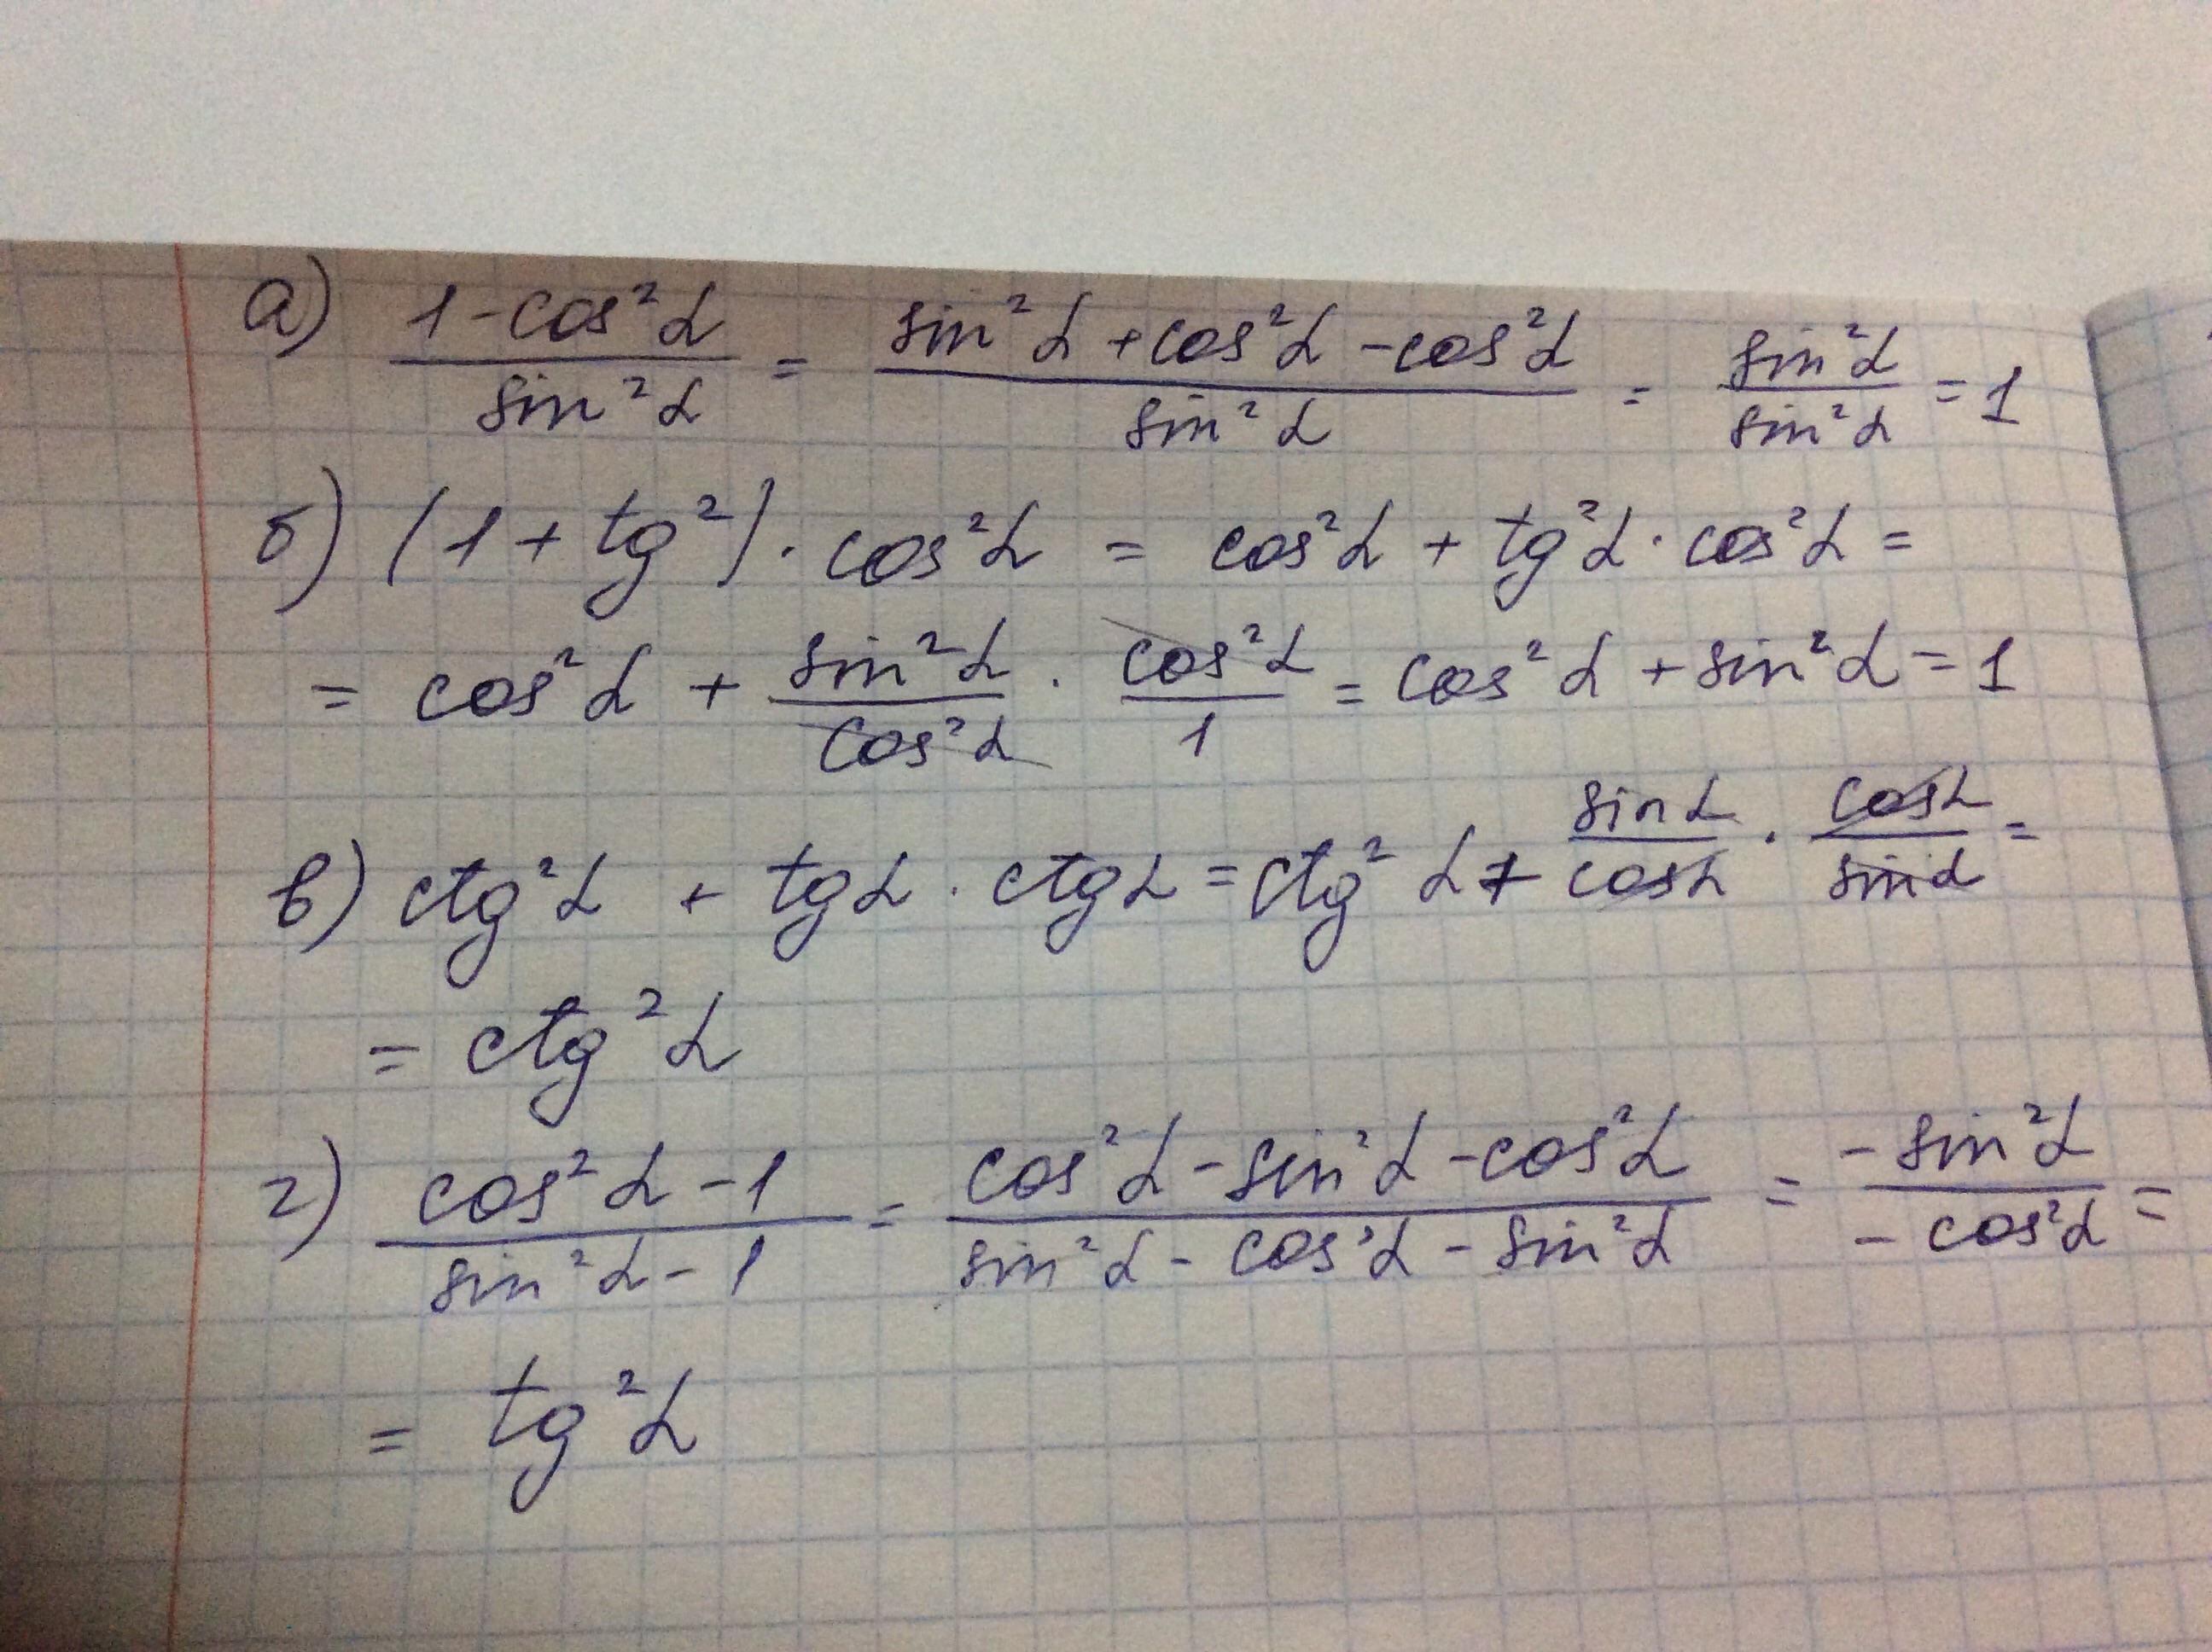 а) (1-cos²α)/(sin²α) = (sin²α+cos²α-cos²α)/(sin²α) = (sin²α)/(sin²α) = 1
б) (1+tg²)·cos²α = cos²α + tg²α·cos²α =
= cos²α + (sin²α)/(cos²α) · (cos²α)/1 = cos²α + sin²α = 1
в) ctg²α + tgα · ctgα = ctg²α + (sinα)/(cosα) · (cosα)/(sinα) =
= ctg²α
г) (cos²α-1)/(sin²α-1) = (cos²α-sin²α-cos²α)/(sin²α-cos²α-sin²α) = (-sin²α)/(-cos²α) =
= tg²α